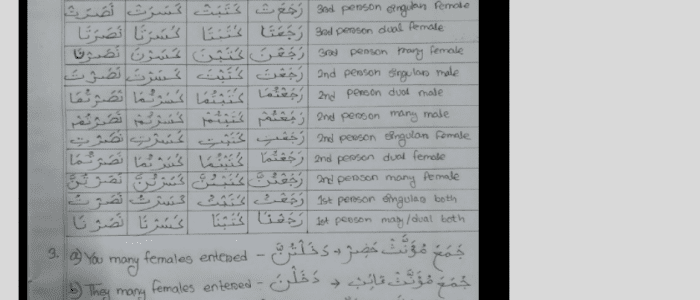 نَصَرَتْ كَسَرَتْ كَتَبَتْ رَجَعَتْ 3rd person singular female
نَصَرَتَا كَسَرَتَا كَتَبَتَا رَجَعَتَا 3rd person dual female
نَصَرْنَ كَسَرْنَ كَتَبْنَ رَجَعْنَ 3rd person many female
نَصَرْتَ كَسَرْتَ كَتَبْتَ رَجَعْتَ 2nd person singular male
نَصَرْتُمَا كَسَرْتُمَا كَتَبْتُمَا رَجَعْتُمَا 2nd person dual male
نَصَرْتُمْ كَسَرْتُمْ كَتَبْتُمْ رَجَعْتُمْ 2nd person many male
نَصَرْتِ كَسَرْتِ كَتَبْتِ رَجَعْتِ 2nd person singular female
نَصَرْتُمَا كَسَرْتُمَا كَتَبْتُمَا رَجَعْتُمَا 2nd person dual female
نَصَرْتُنَّ كَسَرْتُنَّ كَتَبْتُنَّ رَجَعْتُنَّ 2nd person many female
نَصَرْتُ كَسَرْتُ كَتَبْتُ رَجَعْتُ 1st person singular both
نَصَرْنَا كَسَرْنَا كَتَبْنَا رَجَعْنَا 1st person many/dual both
3. a) You many females entered - دَخَلْتُنَّ → جَمَعْ مُؤَنَّثْ حَضِرْ
b) They many females entered - دَخَلْنَ → جَمَعْ مُؤَنَّثْ غَائِبْ